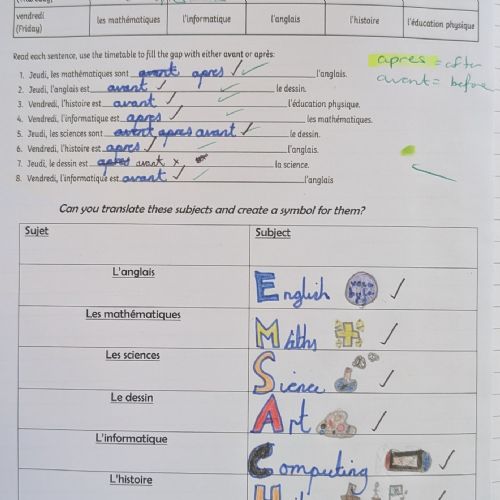 vendredi les mathématiques l'informatique l'anglais l'histoire l'éducation physique
(Friday)
Read each sentence, use the timetable to fill the gap with either avant or après:
après = after
avant = before
1. Jeudi, les mathématiques sont avant après l'anglais.
2. Jeudi, l'anglais est avant le dessin.
3. Vendredi, l'histoire est avant l'éducation physique.
4. Vendredi, l'informatique est après les mathématiques.
5. Jeudi, les sciences sont avant après avant le dessin.
6. Vendredi, l'histoire est après l'anglais.
7. Jeudi, le dessin est après avant x la science.
8. Vendredi, l'informatique est avant l'anglais
Can you translate these subjects and create a symbol for them?
Sujet Subject
L'anglais English
Les mathématiques Maths
Les sciences Sience
Le dessin Art
L'informatique Computing
L'histoire